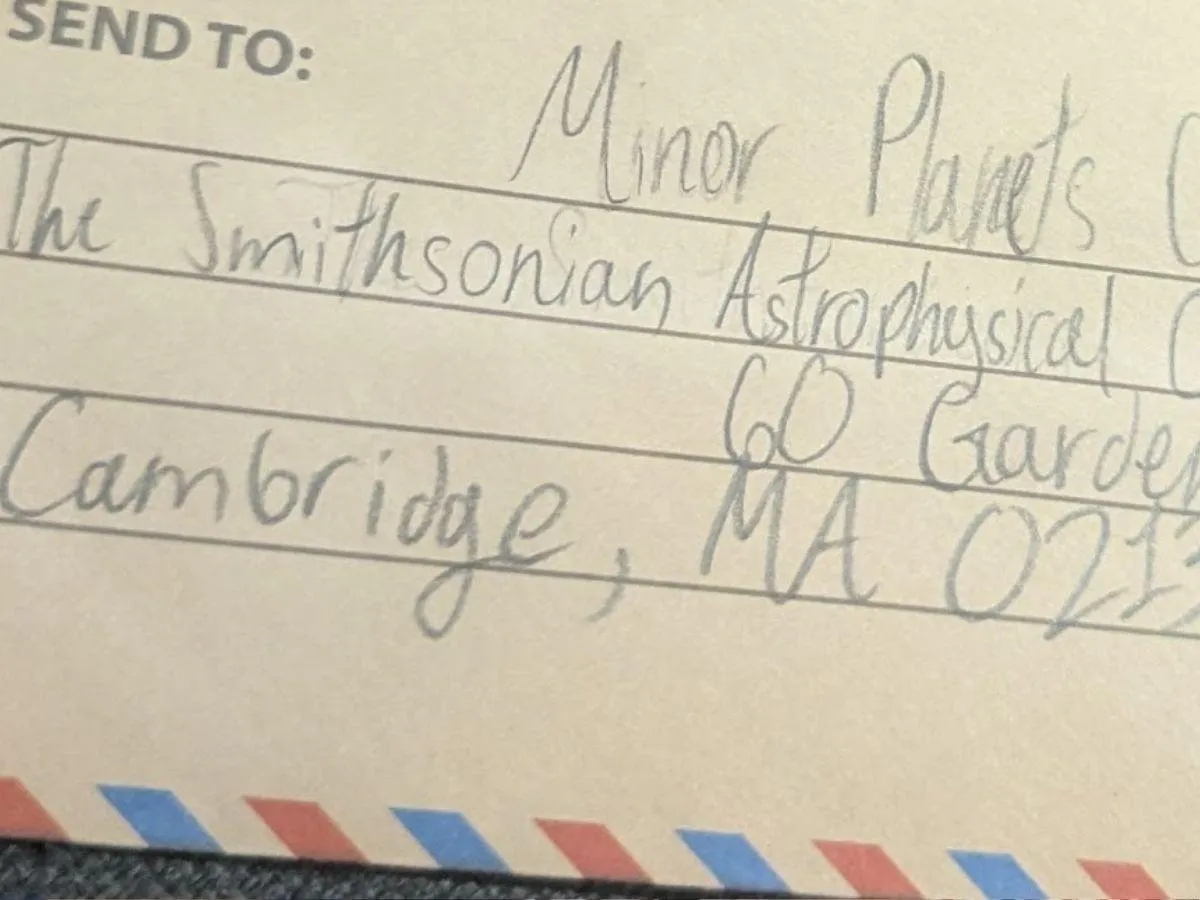 SEND TO:
Minor Planets C
The Smithsonian Astrophysical
60 Garden
Cambridge, MA 0213